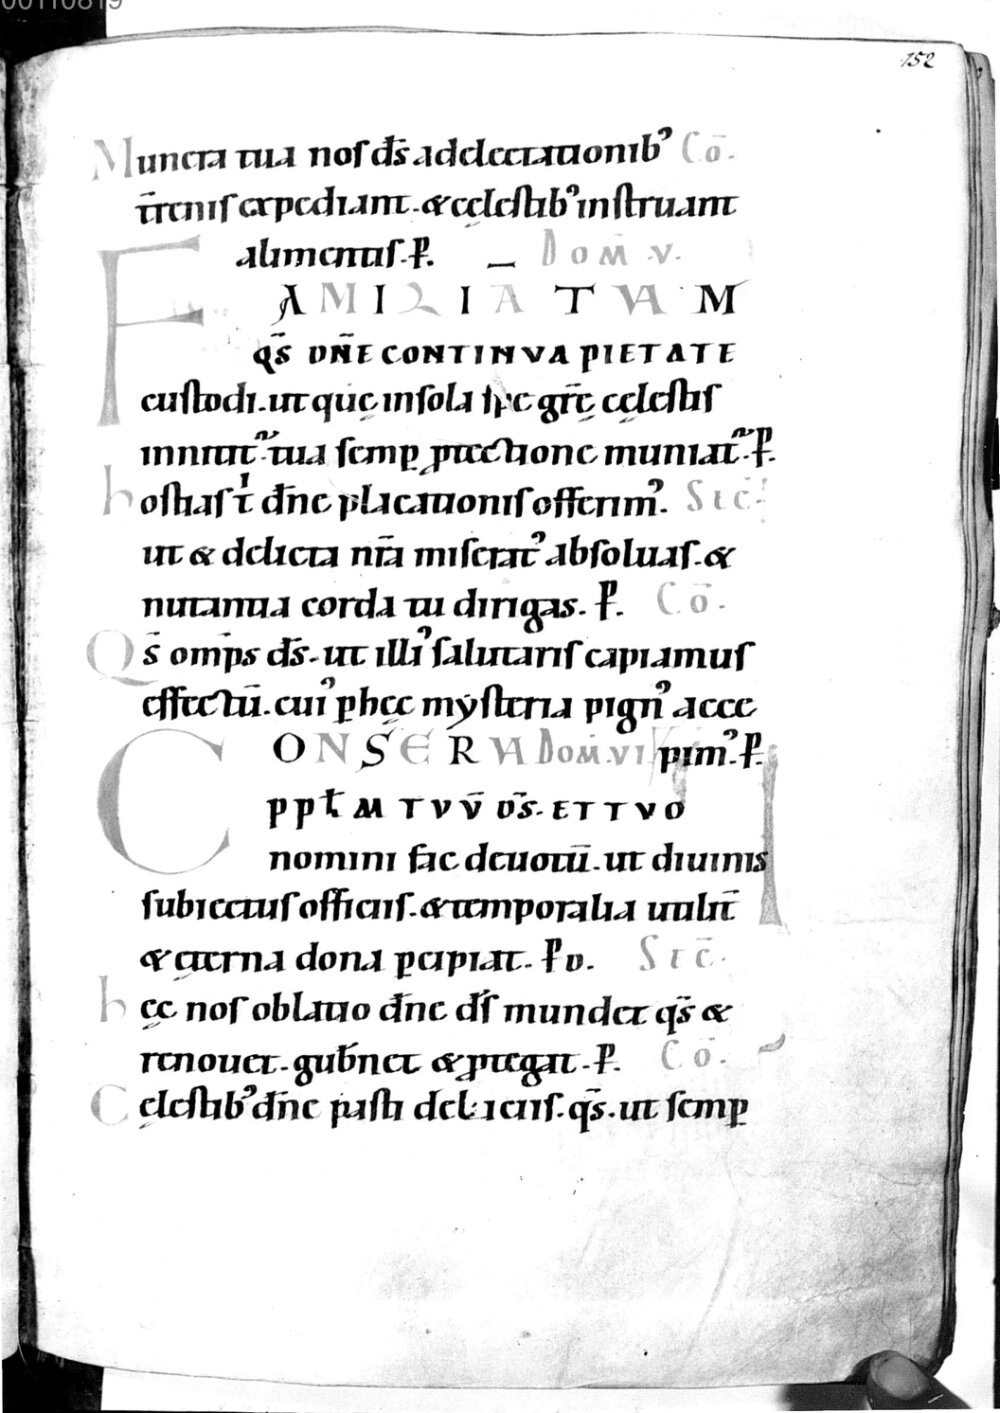 00110819
152
Muncta tua nos d̄s a delectationib᾽ Cō.
t̄renis expediant. & cęlestib᾽ instruant
alimentis. P̵. Dom̄ v.
FAMILIA TVAM
q̄s DN̄E CONTINVA PIETATE
custodi. ut quę in sola spe gr̄ę cęlestis
innitit᷑. tua semp̱ ꝓtectione muniat᷑. P̵.
hostias t᷑ dn̄e placationis offerim᾽. Sec̄.
ut & delicta nr̄a miserat᾽ absoluas. &
nutantia corda tu dirigas. P̵. Cō.
Q̄s omp̄s d̄s. ut illi᾽ salutaris capiamus
effectū. cui᾽ p̱ hęc mysteria pign᾽ acce
CONSERVA Dom̄. VI pim᾽. P̵.
PPt̄M TVV̄ D̄S. ET TVO
nomini fac deuotū. ut diuinis
subiectus officiis. & temporalia uirilit̄
& ęterna dona p̱cipiat. P̵ D. Sec̄.
hęc nos oblatio dn̄e d̄s mundet q̄s &
renouet. gub̄net & ꝓtegat. P̵. Cō.
Cęlestib᾽ dn̄e pasti deliciis. q̄s. ut semp̱